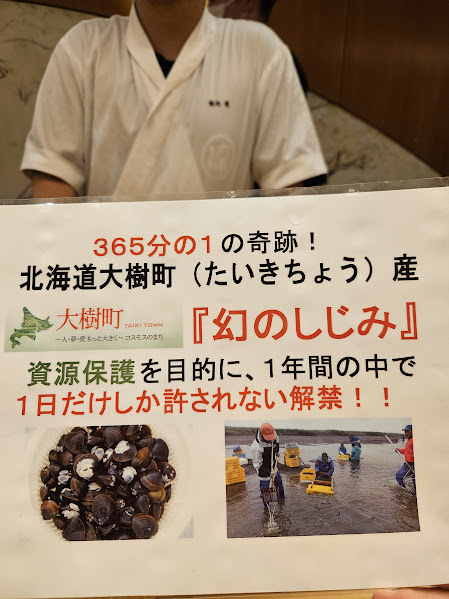 365分の1の奇跡！
北海道大樹町（たいきちょう）産
大樹町 TAIKI TOWN
～人・夢・愛 もっと大きく～コスモスのまち
『幻のしじみ』
資源保護を目的に、1年間の中で
1日だけしか許されない解禁！！